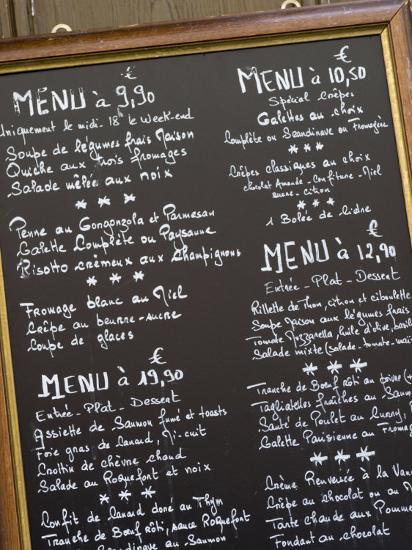 MENU à 9,90 €
Uniquement le midi - 18€ le Week-end
Soupe de légumes frais Maison
Quiche aux trois fromages
Salade mêlée aux noix
***
Penne au Gongonzola et Parmesan
Galette Complète ou Paysanne
Risotto crémeux aux Champignons
***
Fromage blanc au Miel
Crêpe au beurre-sucre
Coupe de glaces
MENU à 19,90 €
Entrée - Plat - Dessert
Assiette de Saumon fumé et toasts
Foie gras de Canard, Mi-cuit
Crottin de chèvre chaud
Salade au Roquefort et noix
***
Confit de Canard doré au Thym
Tranche de Bœuf rôti, sauce Roquefort
Scandinave au Saumon
MENU à 10,50 €
Spécial Crêpes
Galettes au choix
Complète ou Scandinave ou Fromagère
***
Crêpes classiques au choix
chocolat Amande - Confiture - Miel
sucre - citron
***
1 Bolée de Cidre
MENU à 12,90 €
Entrée - Plat - Dessert
Rillette de Thon, citron et ciboulette
Soupe Maison aux légumes frais
Tomate Mozzarella, huile d'olive,
Salade mixte (salade - tomate -
***
Tranche de Bœuf rôti au
Tagliatelles fraîches au Saumon
Sauté de Poulet au Curry,
Galette Parisienne au
***
Crème Renversée à la
Crêpe au chocolat ou au
Tarte chaude aux
Fondant au chocolat